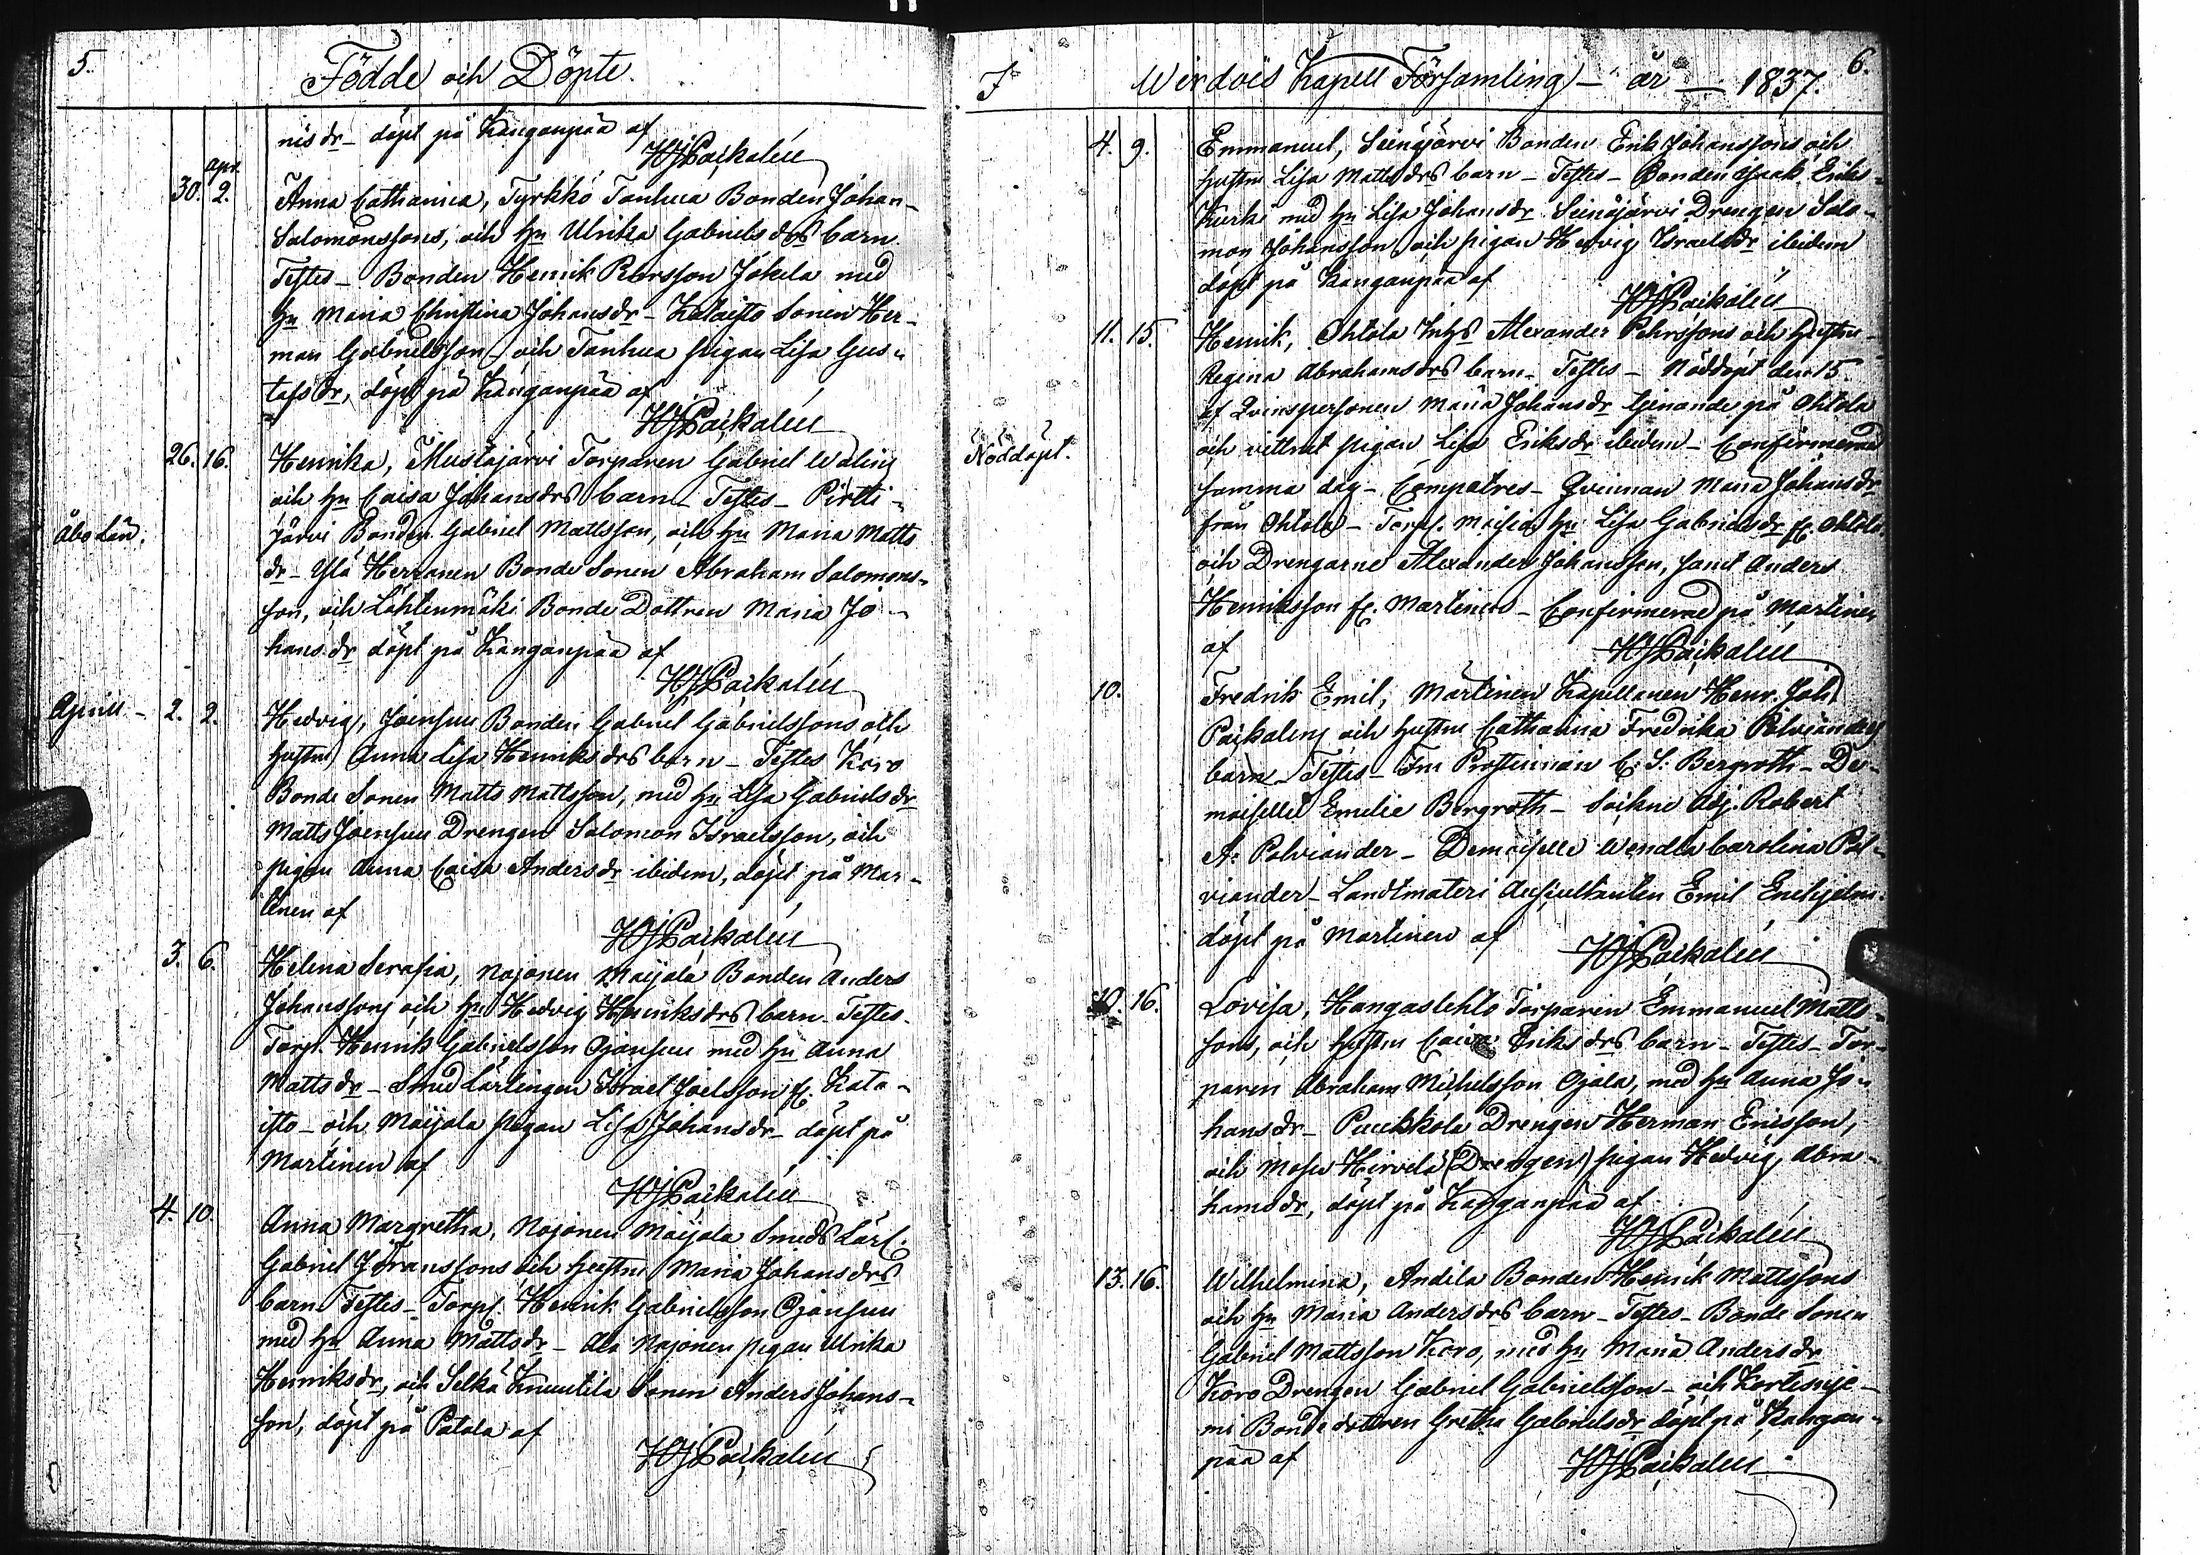 5.
Födde och Döpte.
nis dr_ döpt på Kanganpää af
HJPaikalén
apr.
30. 2. Anna Catharina, Tyrkkö Tanhua Bonden Johan
Salomonssons, och Hu Ulrika Gabriels drs barn.
Testes_ Bonden Henrik Persson Jokela med
Hu Maria Christina Johansdr_ Kataisto Sonen Her-
man Gabrielsson_ och Tanhua pigan Lisa Gus-
tafs dr, döpt på Kanganpää af
HJPaikalén
26. 16. Henrika, Mustajärvi Torparen Gabriel Walins
och Hu Caisa Johansdrs barn_ Testes_ Pirtti-
Åbo Län. järvi Bonden Gabriel Mattsson, och Hu Maria Matts
dr_ Ylä Herranen Bonde Sonen Abraham Salomons-
son, och Löhtenmäki Bonde Dottren Maria Jo-
hans dr döpt på Kanganpää af
HJPaikalén
April_ 2. 2. Hedvig, Joensuu Bonden Gabriel Gabrielssons och
hustru Anna Lisa Henriksdrs barn_ Testes Koro
Bonde Sonen Matts Mattsson, med Hu Lisa Gabrielsdr
Matts Joensuu Drengen Salomon Israelsson, och
pigan Anna Caisa Andersdr ibidem, döpt på Mar-
tinen af
HJPaikalén
3. 6. Helena Serafia, Nojonen Maijala Bonden Anders
Johanssons och Hu Hedvig Henriksdrs barn_ Testes_
Torp. Henrik Gabrielsson Ojansuu med Hu Anna
Matts dr_ Smed Lärlingen Israel Joelsson fr. Kata-
isto_ och Maijala pigan Lisa Johansdr_ döpt på
Martinen af
HJPaikalén
4. 10. Anna Margretha, Nojonen Maijala Smeds Lärl.
Gabriel Fransssons och hustru Maria Johansdrs
barn_ Testes_ Torp. Henrik Gabrielsson Ojansuu
med Hu Anna Mattsdr_ Ala Nojonen pigan Ulrika
Henriksdr, och Selkä Knuutila Sonen Anders Johans-
son, döpt på Patala af
HJPaikalén
6.
I Wirdois Kapell Församling_ år _ 1837.
4. 9. Emmanuel, Seinäjärvi Bonden Erik Johanssons och
hustru Lisa Mattsdrs barn_ Testes_ Bonden Isaak Eriks-
Kurki med Hu Lisa Johansdr Seinäjärvi Drengen Salo-
mon Johansson, och pigan Hedvig Israelsdr ibidem
döpt på Kanganpää af
HJPaikalén
11. 15. Henrik, Ohtola Inhs Alexander Pehrssons och hustru
Regina Abrahamsdrs barn_ Testes_ Nöddöpt den 15
af Qvinspersonen Maria Johansdr tjenande på Ohtola
Nöddöpt. och vittnat pigan Lisa Eriksdr ibidem_ Confirmerad
samma dag_ Compatres_ Qvinnan Maria Johansdr
från Ohtola_ Hu Lisa Gabrielsdr fr. Ohtola.
och Drengarne Alexander Johansson, samt Anders
Henriksson fr. Martinen_ Confirmerad på Martinen
af
HJPaikalén
10. Fredrik Emil, Martinen Kapellanen Henr. Joh.
Paikaléns och hustru Catharina Fredrika Polvianders
barn_ Testes_ Fru Prostinnan C: S: Bergroth_ De-
moiselle Emelie Bergroth_ Sockne Adj. Robert
A: Polviander_ Demoiselle Wendla Carolina Pol-
viander_ Landtmäteri Auscultanten Emil Enehjelm.
döpt på Martinen af
HJPaikalén
10. 16. Lovisa, Hangaslehto Torparen Emmanuel Matts-
sons, och hustru Caisa Eriks drs barn_ Testes_ Tor-
paren Abraham Michelsson Ojala, med Hu Anna Jo-
hans dr_ Puukkola Drengen Herman Ericsson,
och Moses Hirvelä (Drengen) pigan Hedvig Abra-
hams dr, döpt på Kanganpää af
HJPaikalén
13. 16. Wilhelmina, Andila Bonden Henrik Mattssons
och Hu Maria Andersdrs barn_ Testes_ Bonde Sonen
Gabriel Mattsson Koro, med Hu Maria Andersdr
Koro Drengen Gabriel Gabrielsson_ och Kortesnie-
mi Bonde dottren Gretha Gabrielsdr döpt på Kangan-
pää af
HJPaikalén